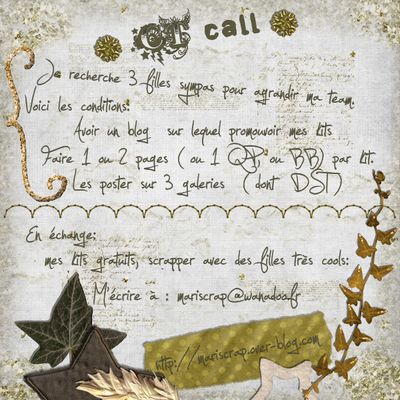 CT call
Je recherche 3 filles sympas pour agrandir ma team.
Voici les conditions:
Avoir un blog sur lequel promouvoir mes kits
Faire 1 ou 2 pages ( ou 1 QP, ou BB) par kit.
Les poster sur 3 galeries ( dont DST)
En échange:
mes kits gratuits, scrapper avec des filles très cools:
M'écrire à : mariscrap@wanadoo.fr
http://mariscrap.over-blog.com